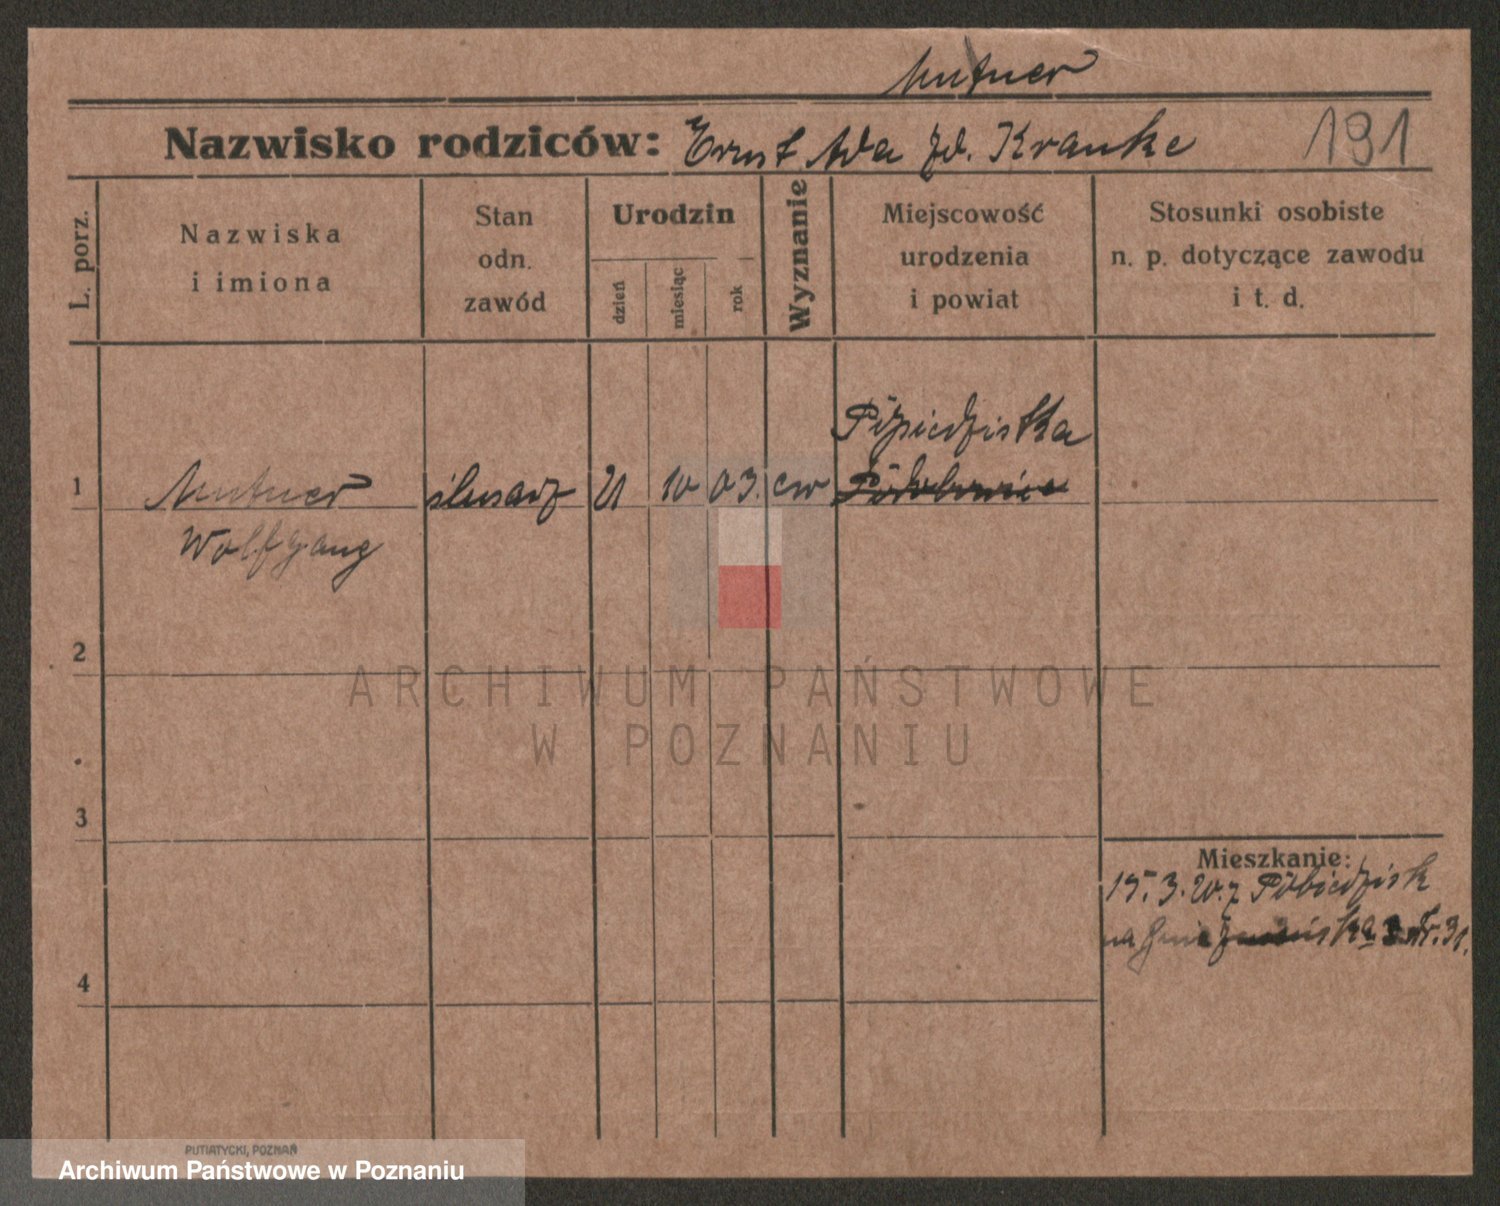 Mutner
Nazwisko rodziców: Ernst Ida zd. Kranke 191
L. porz.
Nazwiska
i imiona
Stan
odn.
zawód
Urodzin
dzień
miesiąc
rok
Wyznanie
Miejscowość
urodzenia
i powiat
Stosunki osobiste
n. p. dotyczące zawodu
i t. d.
1 Mutner ślusarz 21 10 03. ew
Wolfgang
2
3
4
Mieszkanie:
15.3.20. z Pobiedzisk
na
ARCHIWUM PAŃSTWOWE
W POZNANIU
PUTIATYCKI, POZNAŃ
Archiwum Państwowe w Poznaniu